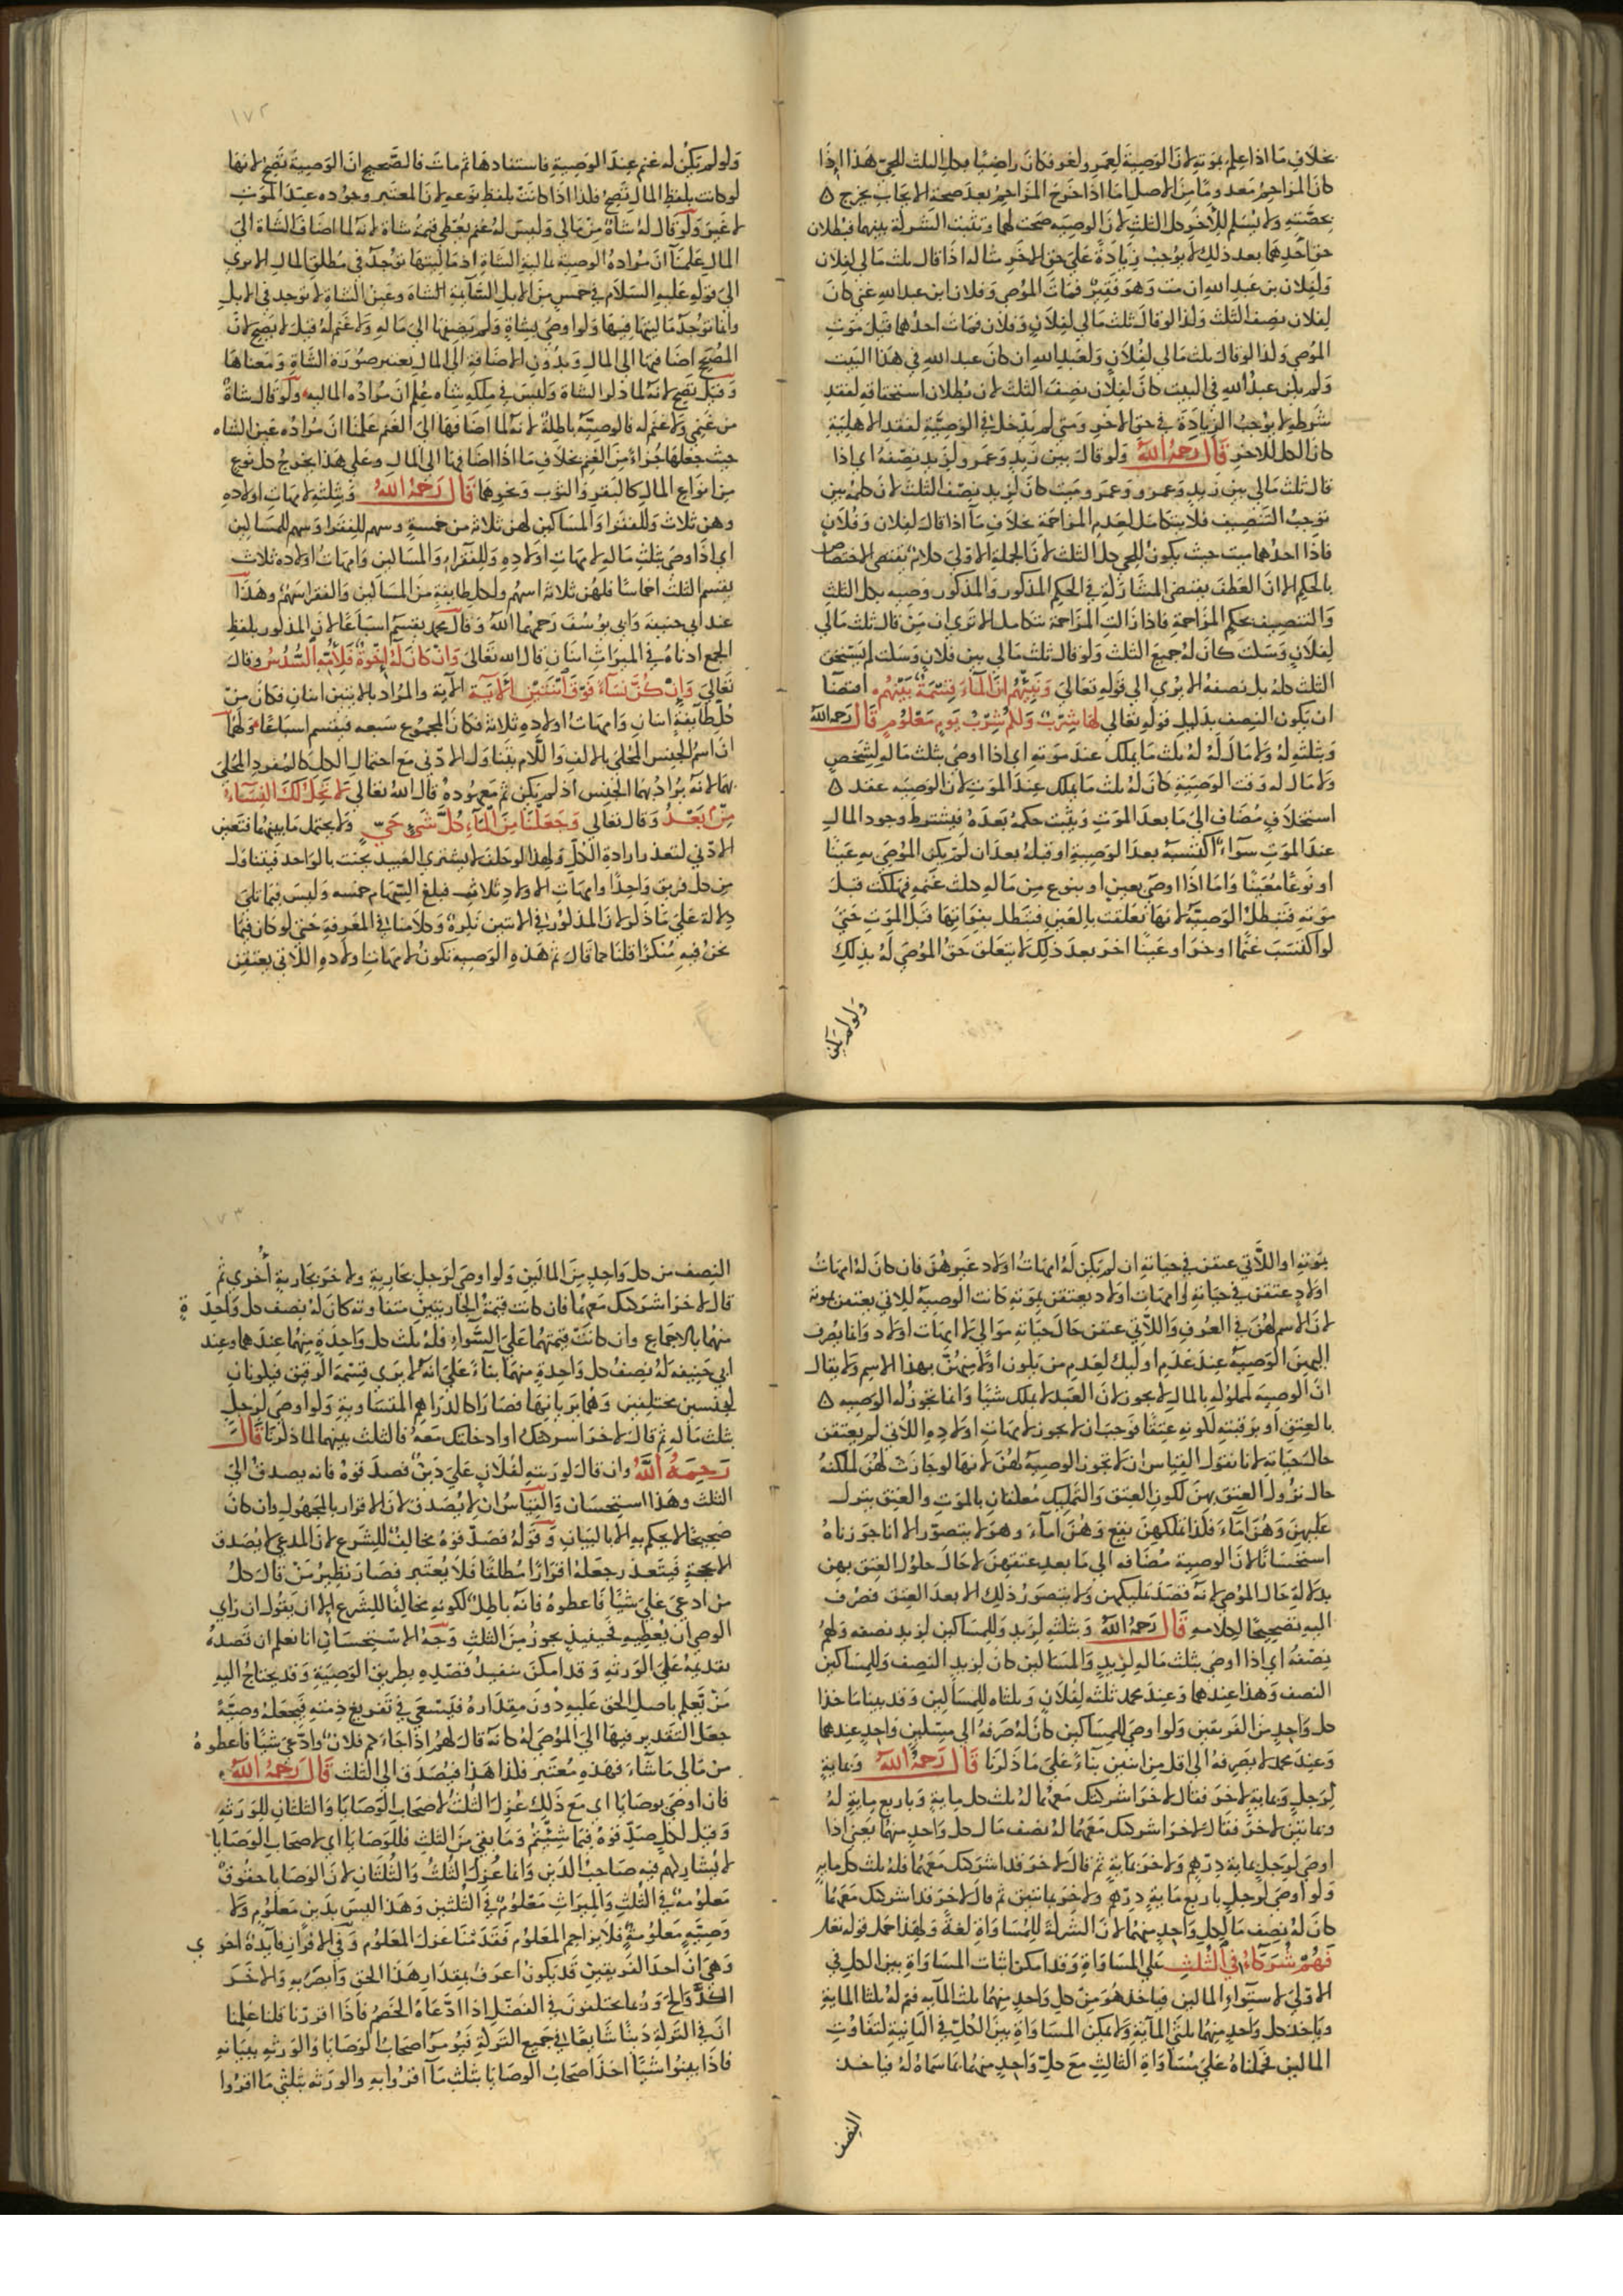 بخلاف ما اذا علم بموته لان الوصية لعمرو لغو فكان راضيا بكل الثلث للحي هذا اذا
كان المزاحم معدوما من الاصل اما اذا خرج المزاحم بعد صحة الايجاب يخرج ه
بحصته ولا يسلم للآخر كل الثلث لان الوصيه صحت لهما وتثبت الشركة بينهما فبطلان
حق احدهما بعد ذلك لا يوجب زيادة على حق الاخر مثاله اذا قال ثلث مالي لفلان
ولفلان بن عبد الله ان مت وهو فقير فمات الموصي وفلان ابن عبد الله غني كان
لفلان نصف الثلث وكذا لو قال ثلث مالي لفلان وفلان فمات احدهما قبل موت
الموصي وكذا لو قال ثلث مالي لفلان ولعبد الله ان كان عبد الله في هذا البيت
ولم يكن عبد الله في البيت كان لفلان نصف الثلث لان بطلان استحقاقه لفقد
شرطه لا يوجب الزيادة في حق الاخر ومتى لم يدخل في الوصية لفقد الاهلية
كان الكل للاخر قال رحمه الله ولو قال بين زيد وعمرو لزيد نصفه اي اذا
قال ثلث مالي بين زيد وعمرو وعمرو ميت كان لزيد نصف الثلث لان كلمة بين
توجب التنصيف فلا يتكامل لعدم المزاحمة بخلاف ما اذا قال لفلان وفلان
فاذا احدهما ميت حيث يكون للحي كل الثلث لان الجملة الاولى كلام يقتضي الاختصاص
بالحكم الا ان العطف يقتضي المشاركة في الحكم المذكور والمذكور وصيه بكل الثلث
والتنصيف بحكم المزاحمة فاذا زالت المزاحمة تتكامل الا ترى ان من قال ثلث مالي
لفلان وسكت كان له جميع الثلث ولو قال ثلث مالي بين فلان وسكت لم يستحق
الثلث كله بل نصفه الا يرى الى قوله تعالى ونبئهم ان الماء قسمة بينهم اقتضا
ان يكون النصف بدليل قوله تعالى لها شرب ولكم شرب يوم معلوم قال رحمه الله
وبثلثه له ولا مال له له ثلث ما يملك عند موته اي اذا اوصى بثلث ماله لشخص
ولا مال له وقت الوصية كان له ثلث ما يملك عند الموت لان الوصيه عقد ه
استخلاف مضاف الى ما بعد الموت ويثبت حكمه بعده فيشترط وجود المال
عند الموت سواء اكتسبه بعد الوصية او قبله بعد ان لم يكن الموصى به عينا
او نوعا معينا واما اذا اوصى بعين او بنوع من ماله كثلث غنمه فهلكت قبل
موته فتبطل الوصية لانها تعلقت بالعين فتبطل بفواتها قبل الموت حتى
لو اكتسب غنما اخر او عينا اخر بعد ذلك لا يتعلق حق الموصى له بذلك
ولو لم يكن
١٧٢
ولو لم يكن له غنم عند الوصية فاستفادها ثم مات فالصحيح ان الوصية تصح لانها
لو كانت بلفظ المال تصح فكذا اذا كانت بلفظ نوعه لان المعتبر وجوده عند الموت
لا غير ولو قال له شاة من مالي وليس له غنم يعطى قيمة شاة لانه لما اضاف الشاة الى
المال علمنا ان مراده الوصية بمالية الشاة اذ ماليتها توجد في مطلق المال الا يرى
الى قوله عليه السلام في خمس من الابل السائمة الشاة وعين الشاة لا توجد في الابل
وانما توجد ماليتها فيها ولو اوصى بشاة ولم يضفها الى ماله ولا غنم له قيل لا يصح لان
المصحح اضافتها الى المال وبدون الاضافة الى المال يعتبر صورة الشاة ومعناها
وقيل تصح لانه لما ذكر الشاة وليس في ملكه شاه علم ان مراده الماليه ولو قال شاة
من غنمي ولا غنم له فالوصية باطلة لانه لما اضافها الى الغنم علمنا ان مراده عين الشاه
حيث جعلها جزاء من الغنم بخلاف ما اذا اضافها الى المال وعلى هذا يخرج كل نوع
من انواع المال كالبقر والثوب ونحوهما قال رحمه الله وبثلثه لامهات اولاده
وهن ثلاث وللفقرا والمساكين لهن ثلاثة من خمسة وسهم للفقرا وسهم للمساكين
اي اذا اوصى بثلث ماله لامهات اولاده وللفقراء والمساكين وامهات اولاده ثلاث
يقسم الثلث اخماسا فلهن ثلاثة اسهم ولكل طايفة من المساكين والفقرا سهم وهذا
عند ابي حنيفة وابي يوسف رحمهما الله وقال محمد يقسم اسباعا لان المذكور بلفظ
الجمع ادناه في الميراث اثنان قال الله تعالى وان كان له اخوة فلامه السدس وقال
تعالى وان كن نساء فوق اثنتين الاية الآية والمراد بالاثنين اثنان فكان من
كل طايفة اثنان وامهات اولاده ثلاثة فكان المجموع سبعه فيقسم اسباعا ولهما
ان اسم الجنس المحلى بالالف واللام يتناول الادنى مع احتمال الكل كالمفرد المحلى
بهما لانه يراد بهما الجنس اذ لم يكن ثم معهوده قال الله تعالى لا تحل لك النساء
من بعد وقال تعالى وجعلنا من الماء كل شيء حي ولا يحتمل ما بينهما فتعين
الادنى لتعذر ارادة الكل ولهذا لو حلف لا يشتري العبيد يحنث بالواحد فيتناول
من كل فريق واحدا وامهات الاولاد ثلاث فبلغ السهام خمسه وليس فيما تلى
دلالة على ما ذكر لان المذكور في الايتين نكرة وكلامنا في المعرفة حتى لو كان فيما
نحن فيه منكرا قلنا كما قال ثم هذه الوصيه تكون لامهات اولاده اللاتي يعتقن
بموته او اللاتي عتقن في حياته ان لم يكن له امهات اولاد غيرهن فان كان له امهات
اولاد عتقن في حياته وامهات اولاد يعتقن بموته كانت الوصية للاتي يعتقن بموته
لان الاسم لهن في العرف واللاتي عتقن حال حياته موالي لا امهات اولاد وانما يصرف
اليهن الوصية عند عدم اوليك لعدم من يكون اولا منهن بهذا الاسم ولا يقال
ان الوصيه لمملوكه بالمال لا يجوز لان العبد لا يملك شيئا وانما تجوز له الوصيه ه
بالعتق او برقبته لكونه عتقا فوجب ان لا يجوز لامهات اولاده اللاتي لم يعتقن
حال حياته لانا نقول القياس ان لا تجوز الوصية لهن لانها لو جازت لهن لملكنه
حال نزول العتق بهن لكون العتق والتمليك معلقان بالموت والعتق ينزل
عليهن وهن اماء فكذا تملكهن يقع وهن اماء وهو لا يتصور الا انا جوزناه
استحسانا لان الوصية مضافه الى ما بعد عتقهن لا حال حلول العتق بهن
بدلالة حال الموصي لانه قصد تمليكهن ولا يتصور ذلك الا بعد العتق فصرف
اليه تصحيحا لكلامه قال رحمه الله وبثلثه لزيد وللمساكين لزيد نصفه ولهم
نصفه اي اذا اوصى بثلث ماله لزيد والمساكين كان لزيد النصف وللمساكين
النصف وهذا عندهما وعند محمد ثلثه لفلان وثلثاه للمساكين وقد بينا ماخذ
كل واحد من الفريقين ولو اوصى للمساكين كان له صرفه الى مسكين واحد عندهما
وعند محمد لا يصرفه الى اقل من اثنين بناء على ما ذكرنا قال رحمه الله وبماية
لرجل وبماية لاخر فقال لاخر اشركتك معهما له ثلث كل ماية وباربع ماية له
وبمائتين لاخر فقال لاخر اشركتك معهما له نصف ما لكل واحد منهما يعني اذا
اوصى لرجل بماية درهم ولاخر بماية ثم قال لاخر قد اشركتك معهما فله ثلث كل مايه
ولو اوصى لرجل باربع ماية درهم ولاخر بمايتين ثم قال لاخر قد اشركتك معهما
كان له نصف ما لكل واحد منهما لان الشركة للمساواة لغة ولهذا حمل قوله تعا
فهم شركاء في الثلث على المساواة وقد امكن اثبات المساواة بين الكل في
الاولى لاستواء المالين فياخذ هو من كل واحد منهما ثلث المايه فتم له ثلثا الماية
وياخذ كل واحد منهما ثلثي الماية ولا يمكن المساواة بين الكل في الثانية لتفاوت
المالين فحملناه على مساواة الثالث مع كل واحد منهما بما سماه له فياخذ
النصف
١٧٣
النصف من كل واحد من المالين ولو اوصى لرجل بجارية ولاخر بجارية أخرى ثم
قال لاخر اشركتك معهما فان كانت قيمة الجاريتين متفاوته كان له نصف كل واحدة
منهما بالاجماع وان كانت قيمتهما على السواء فله ثلث كل واحدة منهما عندهما وعند
ابي حنيفه له نصف كل واحدة منهما بناء على انه لا يرى قسمة الرقيق فيكونان
لجنسين مختلفين وهما يريانها فصارا كالدراهم المتساوية ولو اوصى لرجل
بثلث ماله ثم قال لاخر اشركتك او ادخلتك معه فالثلث بينهما لما ذكرنا قال
رحمه الله وان قال لورثته لفلان على دين فصدقوه فانه يصدق الى
الثلث وهذا استحسان والقياس ان لا يصدق لان الاقرار بالمجهول وان كان
صحيحا لا يحكم به الا بالبيان وقوله فصدقوه مخالف للشرع لان المدعي لا يصدق
الا بحجة فيتعذر جعله اقرارا مطلقا فلا يعتبر فصار نظير من قال كل
من ادعى على شيئا فاعطوه فانه باطل لكونه مخالفا للشرع الا ان يقول ان راى
الوصي ان يعطيه فحينيذ يجوز من الثلث وجه الاستحسان انا نعلم ان قصده
تقديمه على الورثه وقد امكن تنفيذ قصده بطريق الوصية وقد يحتاج اليه
من تعلم باصل الحق عليه دون مقداره فيسعى في تفريغ ذمته فيجعله وصية
جعل التقدير فيها الى الموصى له كانه قال لهم اذا جاءكم فلان وادعى شيئا فاعطوه
من مالي ما شاء فهذه معتبر فكذا هذا فيصدق الى الثلث قال رحمه الله
فان اوصى بوصايا اي مع ذلك عزل الثلث لاصحاب الوصايا والثلثان للورثه
وقيل لكل صدقوه فيما شئتم وما بقي من الثلث فللوصايا اي لاصحاب الوصايا
لا يشاركهم فيه صاحب الدين وانما عزل الثلث والثلثان لان الوصايا حقوق
معلومة في الثلث والميراث معلوم في الثلثين وهذا ليس بدين معلوم ولا
وصية معلومة فلا يزاحم المعلوم فقدمنا عزل المعلوم وفي الافراز فايدة اخرى
وهي ان احد الفريقين قد يكون اعرف بمقدار هذا الحق وابصر به والاخر
الد والج وربما يختلفون في الفضل اذا ادعاه الخصم فاذا افرزنا فلنا علمنا
ان في التركة دينا شايعا في جميع التركة فيؤمر اصحاب الوصايا والورثه ببيانه
فاذا بينوا شيئا اخذ اصحاب الوصايا بثلث ما اقروا به والورثه بثلثي ما اقروا